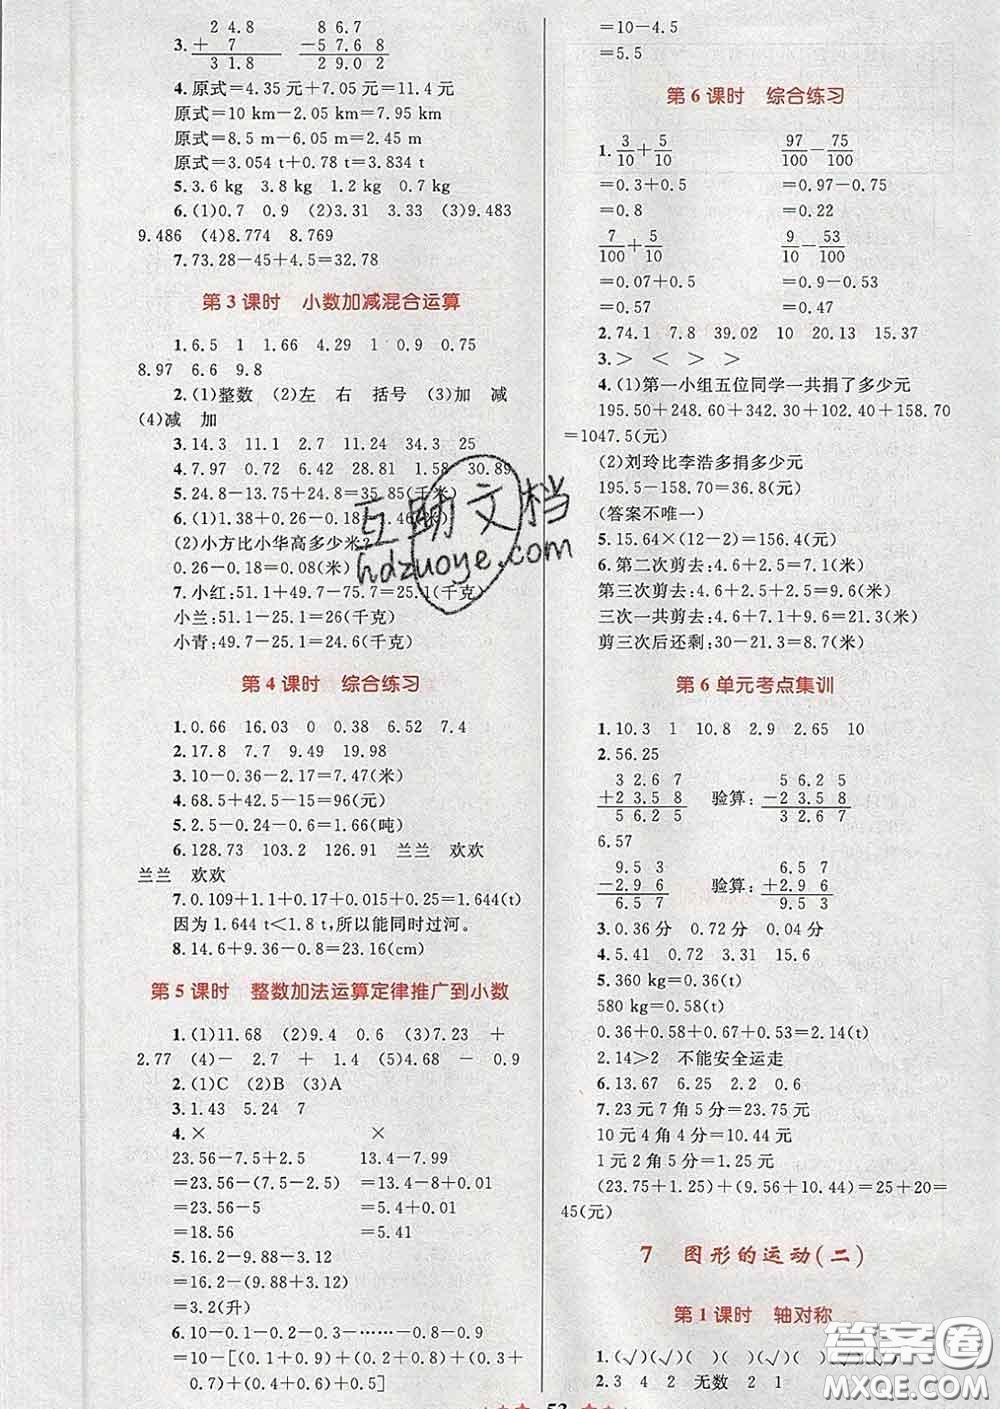 2 4.8　8 6.7
3.＋　7　－5 7.6 8
3 1.8　2 9.0 2
4.原式＝4.35 元＋7.05 元＝11.4 元
原式＝10 km－2.08 km＝7.92 km
原式＝8.5 m－6.05 m＝2.45 m
原式＝3.054 t＋0.78 t＝3.834 t
5.3.6 kg　3.8 kg　1.2 kg　0.7 kg
6.(1)0.7　0.9　(2)3.31　3.33　(3)9.483
9.486　(4)8.774　8.769
7.73.28－45＋4.5＝32.78
第 3 课时　小数加减混合运算
1.6.5　1　1.66　4.29　1　0.9　0.75
8.97　6.6　9.8
2.(1)整数　(2)左　右　括号　(3)加　减
(4)减　加
3.14.3　11.1　2.7　11.24　34.3　25
4.7.97　0.72　6.42　28.81　1.58　30.89
5.24.8－13.75＋24.8＝35.85(千米)
6.(1)1.38＋0.26－0.18＝1.46(米)
(2)小方比小华高多少米?
0.26－0.18＝0.08(米)
7.小红:51.1＋49.7－75.7＝25.1(千克)
小兰:51.1－25.1＝26(千克)
小青:49.7－25.1＝24.6(千克)
第 4 课时　综合练习
1.0.66　16.03　0　0.38　6.52　7.4
2.17.8　7.7　9.49　19.98
3.10－0.36－2.17＝7.47(米)
4.68.5＋42.5－15＝96(元)
5.2.5－0.24－0.6＝1.66(吨)
6.128.73　103.2　126.91　兰兰　欢欢
兰兰　欢欢
7.0.109＋1.1＋0.17＋0.015＋0.25＝1.644(t)
因为 1.644 t＜1.8 t,所以能同时过河。
8.14.6＋9.36－0.8＝23.16(cm)
第 5 课时　整数加法运算定律推广到小数
1.(1)11.68　(2)9.4　0.6　(3)7.23　＋
2.77　(4)－　2.7　＋　1.4　(5)4.68　－　0.9
2.(1)C　(2)B　(3)A
3.1.43　5.24　7
4.×　×
23.56－7.5＋2.5　13.4－7.99
＝23.56－(7.5－2.5)　＝13.4－8＋0.01
＝23.56－5　＝5.4＋0.01
＝18.56　＝5.41
5.16.2－9.88－3.12
＝16.2－(9.88＋3.12)
＝3.2(升)
6.10－0.1－0.2－0.3－……－0.8－0.9
＝10－[(0.1＋0.9)＋(0.2＋0.8)＋(0.3＋
0.7)＋(0.4＋0.6)＋0.5]
＝10－4.5
＝5.5
第 6 课时　综合练习
1.3/10＋5/10　97/100－75/100
＝0.3＋0.5　＝0.97－0.75
＝0.8　＝0.22
7/100＋5/10　9/10－53/100
＝0.07＋0.5　＝0.9－0.53
＝0.57　＝0.37
2.74.1　7.8　39.02　10　20.13　15.37
3.＞　＜　＞　＞
4.(1)第一小组五位同学一共捐了多少元
195.50＋248.60＋342.30＋102.40＋158.70
＝1047.5(元)
(2)刘玲比李浩多捐多少元
195.5－158.70＝36.8(元)
(答案不唯一)
5.15.64×(12－2)＝156.4(元)
6.第二次剪去:4.6＋2.5＝7.1(米)
第三次剪去:4.6＋2.5＋2.5＝9.6(米)
三次一共剪去:4.6＋7.1＋9.6＝21.3(米)
剪三次后还剩:30－21.3＝8.7(米)
第 6 单元考点集训
1.10.3　1　10.8　2.9　2.65　10
2.56.25
3 2.6 7　5 6.2 5
＋2 3.5 8　验算:－2 3.5 8
5 6.2 5　3 2.6 7
6.57
9.5 3　6.5 7
－2.9 6　验算:＋2.9 6
6.5 7　9.5 3
3.0.36 分　0.72 分　0.04 分
4.0.41　0.72　3.31　15.6
5.360 kg＝0.36(t)
580 kg＝0.58(t)
0.36＋0.58＋0.67＋0.53＝2.14(t)
2.14＞2　不能安全运走
6.13.67　6.25　2.2　0.6
7.23 元 7 角 5 分＝23.75 元
10 元 4 角 4 分＝10.44 元
1 元 2 角 5 分＝1.25 元
(23.75＋1.25)＋(9.56＋10.44)＝25＋20＝
45(元)
7　图形的运动(二)
第 1 课时　轴对称
2.3　4　2　无数　2　1
互助文档
hdzuoye.com
答案圈
MXQE.COM